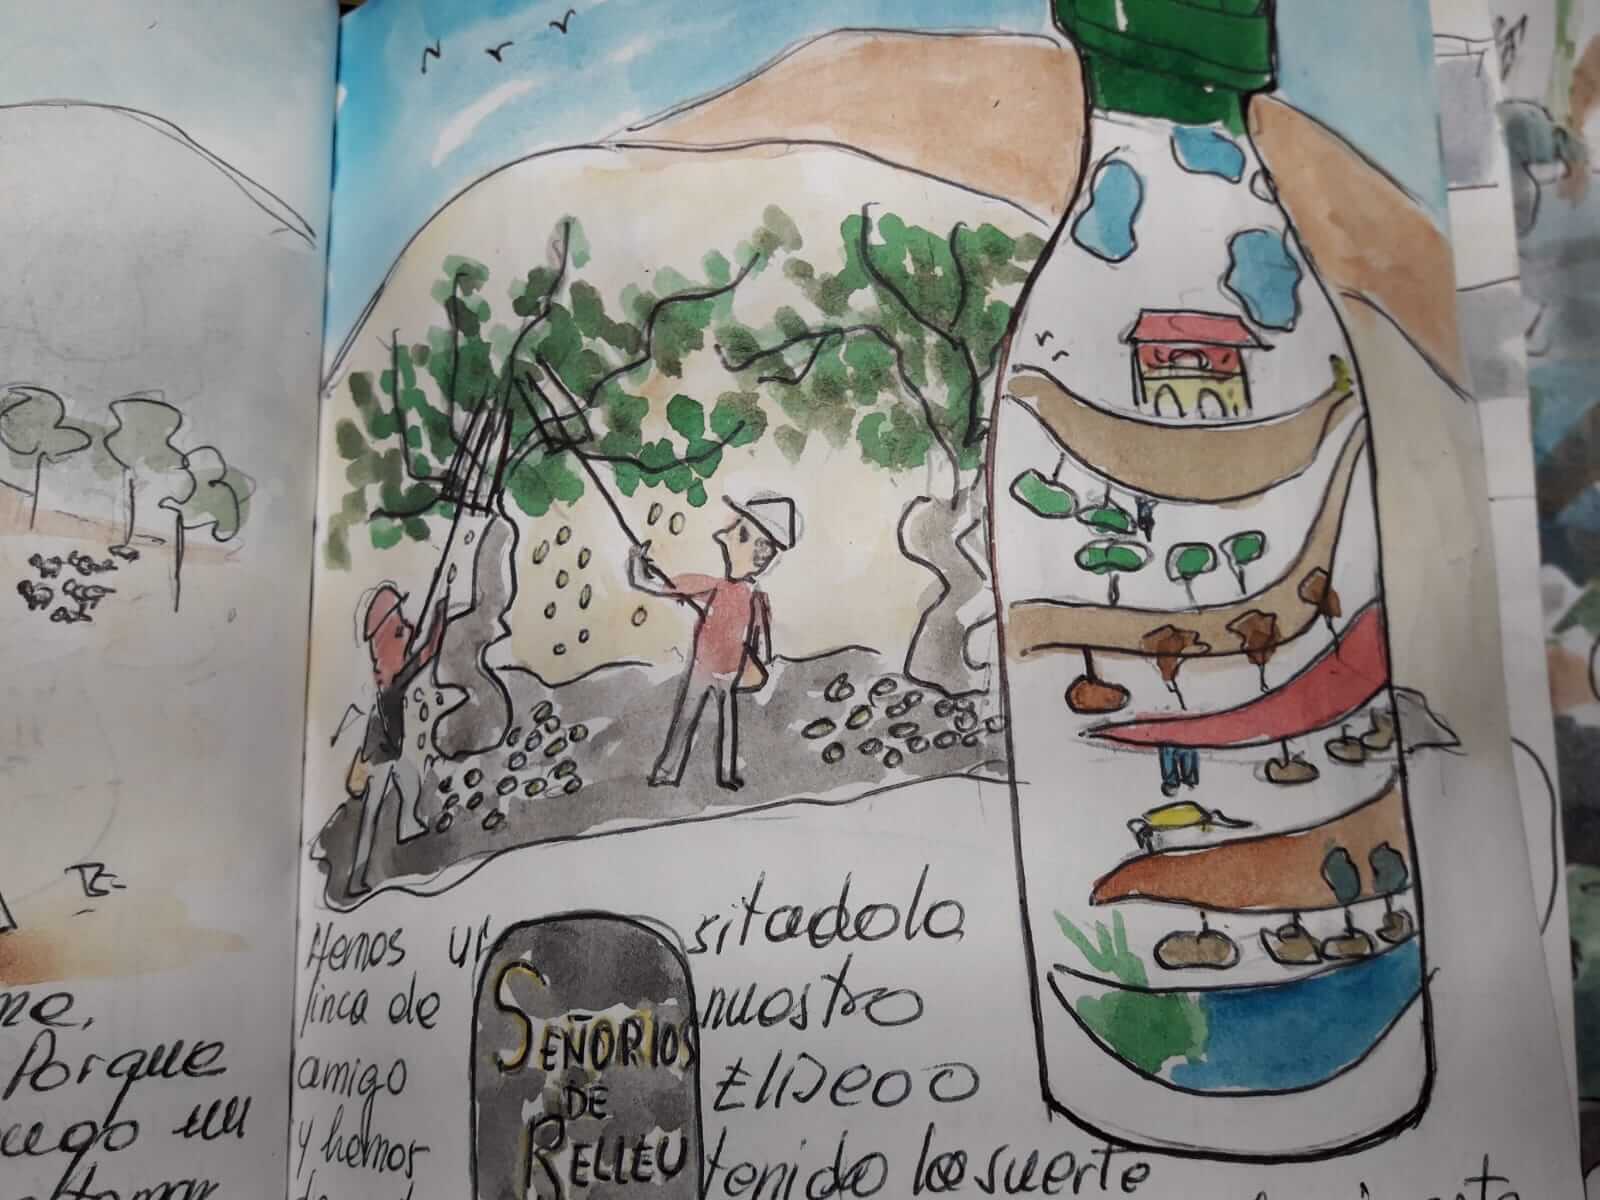 ne.
Porque
un
tomar
Hemos visitado la
finca de nuestro
amigo Eliseo
y hemos tenido la suerte
SEÑORIOS
DE
RELLEU